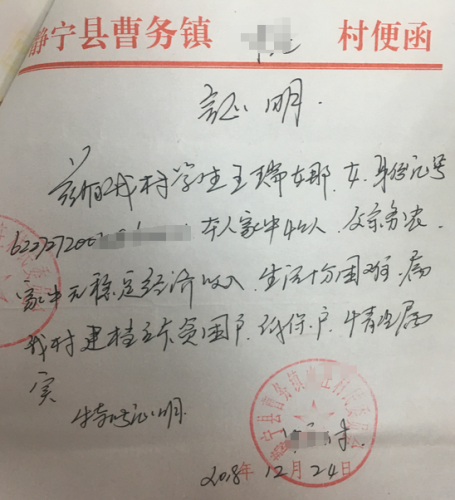 静宁县曹务镇 村便函
证明
兹有我村学生王瑞 女 身份证号
622727200 本人家中4口人 父亲务农
家中无稳定经济收入 生活十分困难 属
我村建档立卡贫困户 低保户 情况属
实
特此证明
静宁县曹务镇
2018年12月24日